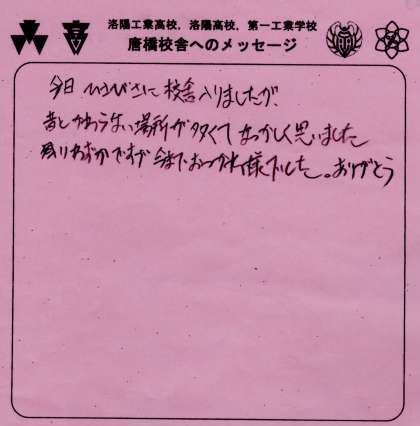 洛陽工業高校，洛陽高校，第一工業学校
唐橋校舎へのメッセージ
高
今日 ひさびさに 校舎入りましたが、
昔とかわらない場所が多くて なつかしく思いました
残りわずかですが 今までおつかれ様でした。ありがとう